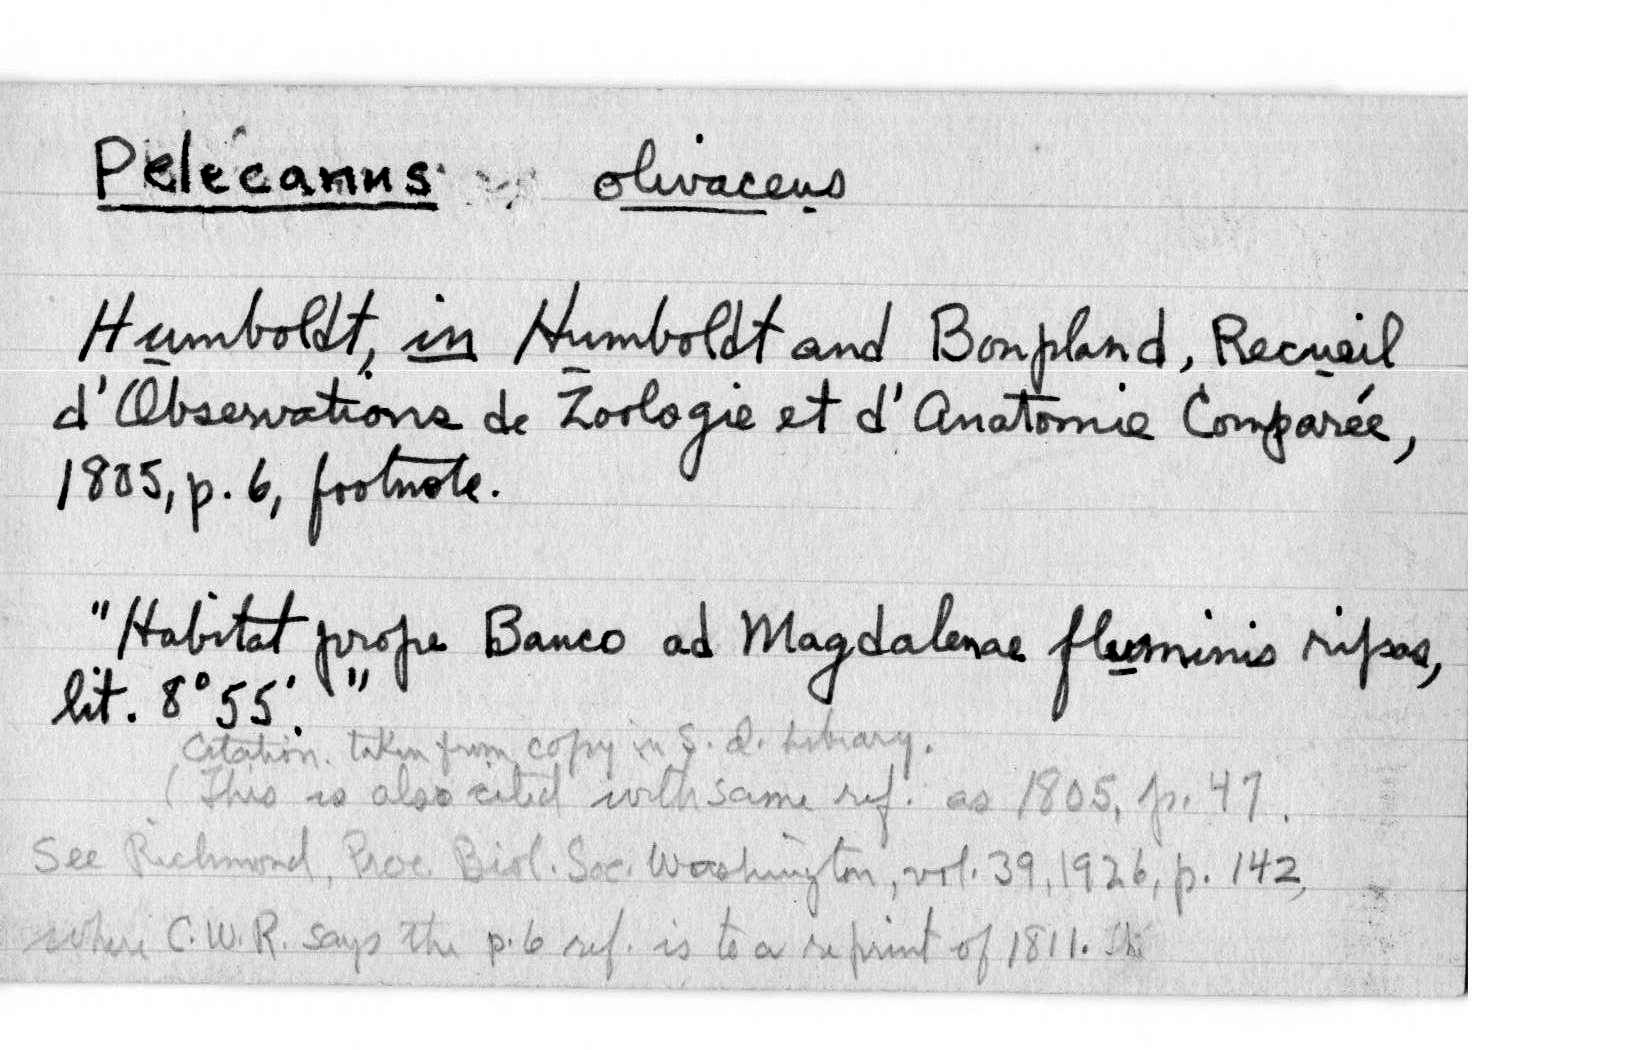 Pelecanus olivaceus
Humboldt, in Humboldt and Bonpland, Recueil
d'Observations de Zoologie et d'Anatomie Comparée,
1805, p. 6, footnote.
"Habitat prope Banco ad Magdalenae fluminis ripas,
lit. 8°55'."
Citation taken from copy in S. D. Library.
(This is also cited with same ref. as 1805, p. 47.
See Richmond, Proc. Biol. Soc. Washington, vol. 39, 1926, p. 142,
where C.W.R. says the p. 6 ref. is to a reprint of 1811.